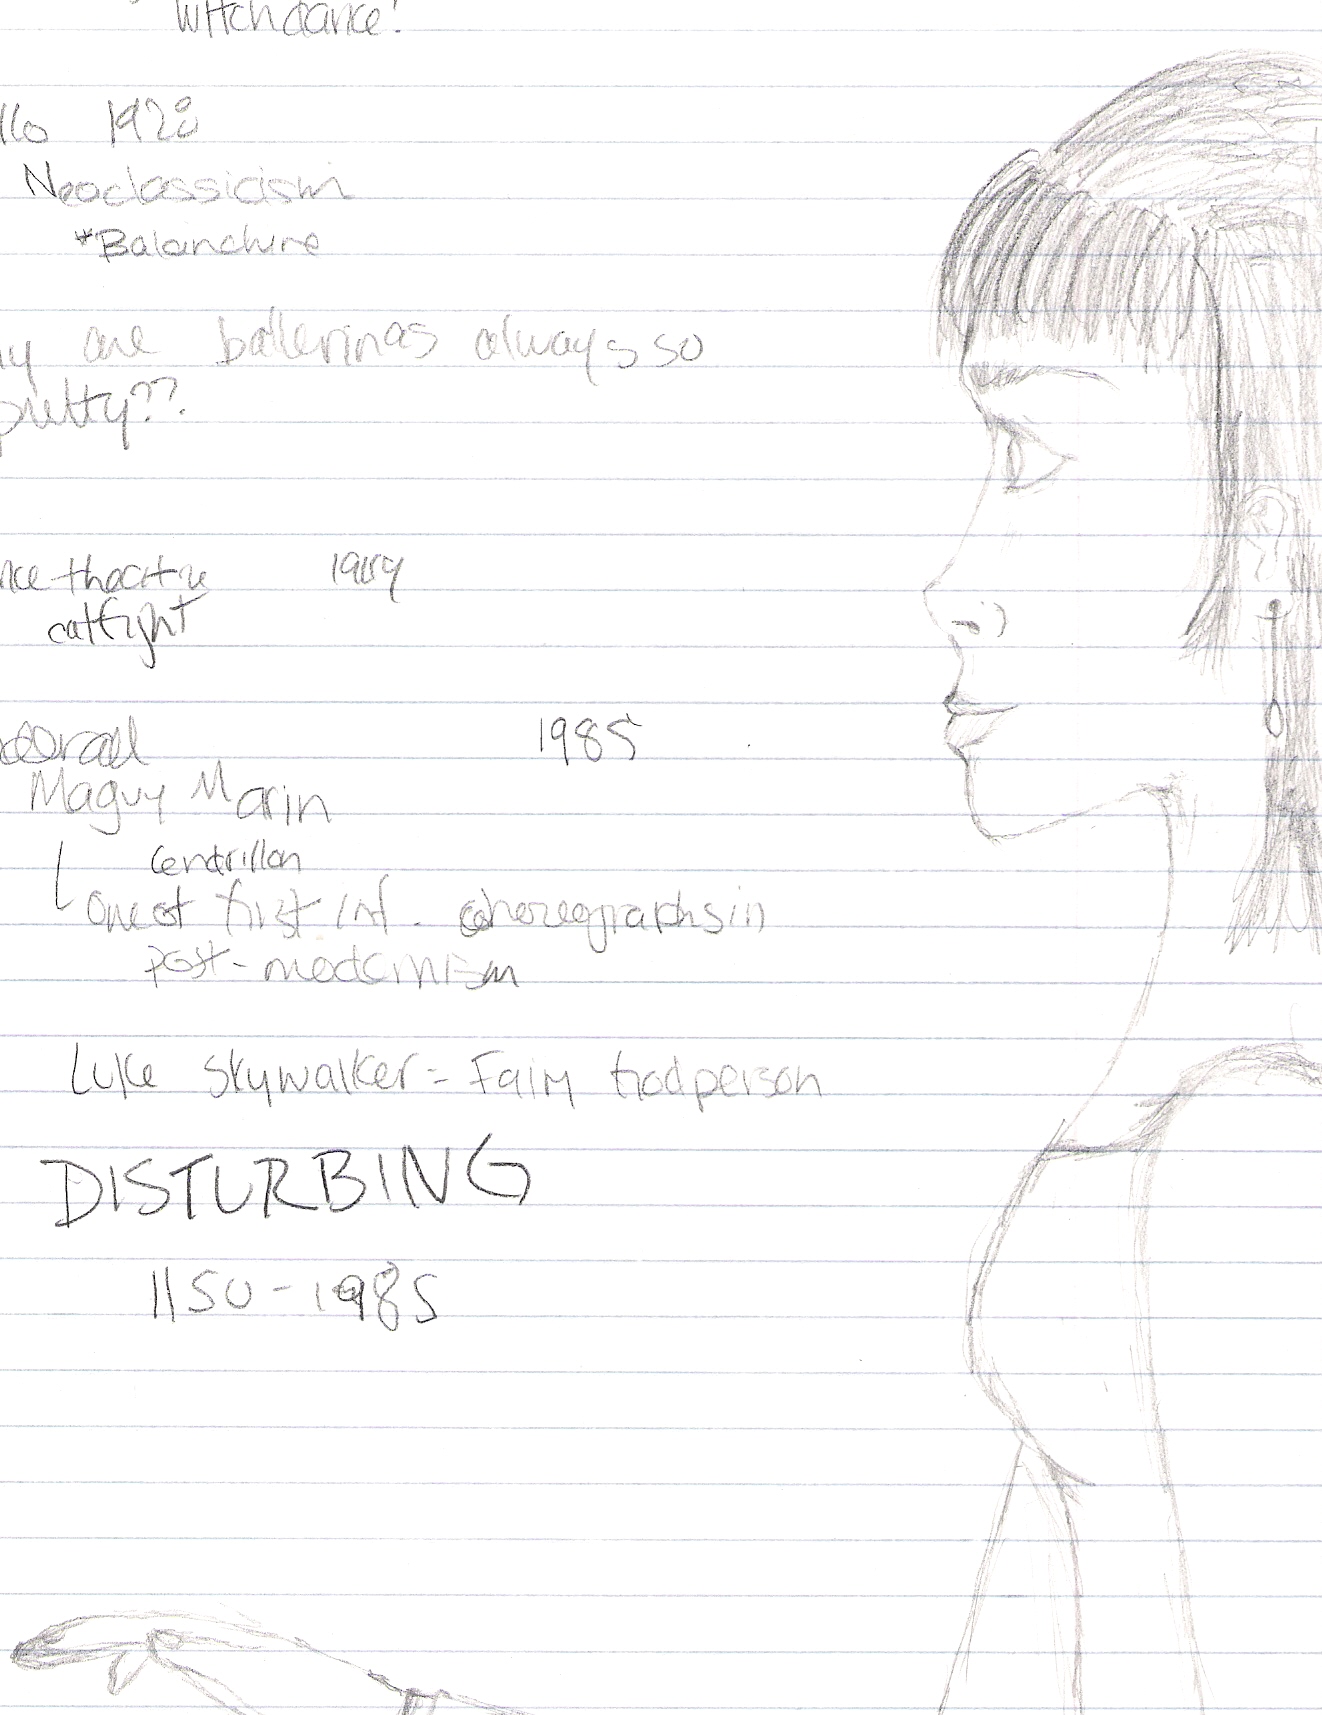 Witchdance!
llo 1928
Neoclassicism
*Balanchine
hy are ballerinas always so
pretty??
nce theatre
catfight
1985
Maguy Marin
Cendrillon
one of first inf. choreographs in
post-modernism
Luke Skywalker = Fairy Godperson
DISTURBING
1150-1985